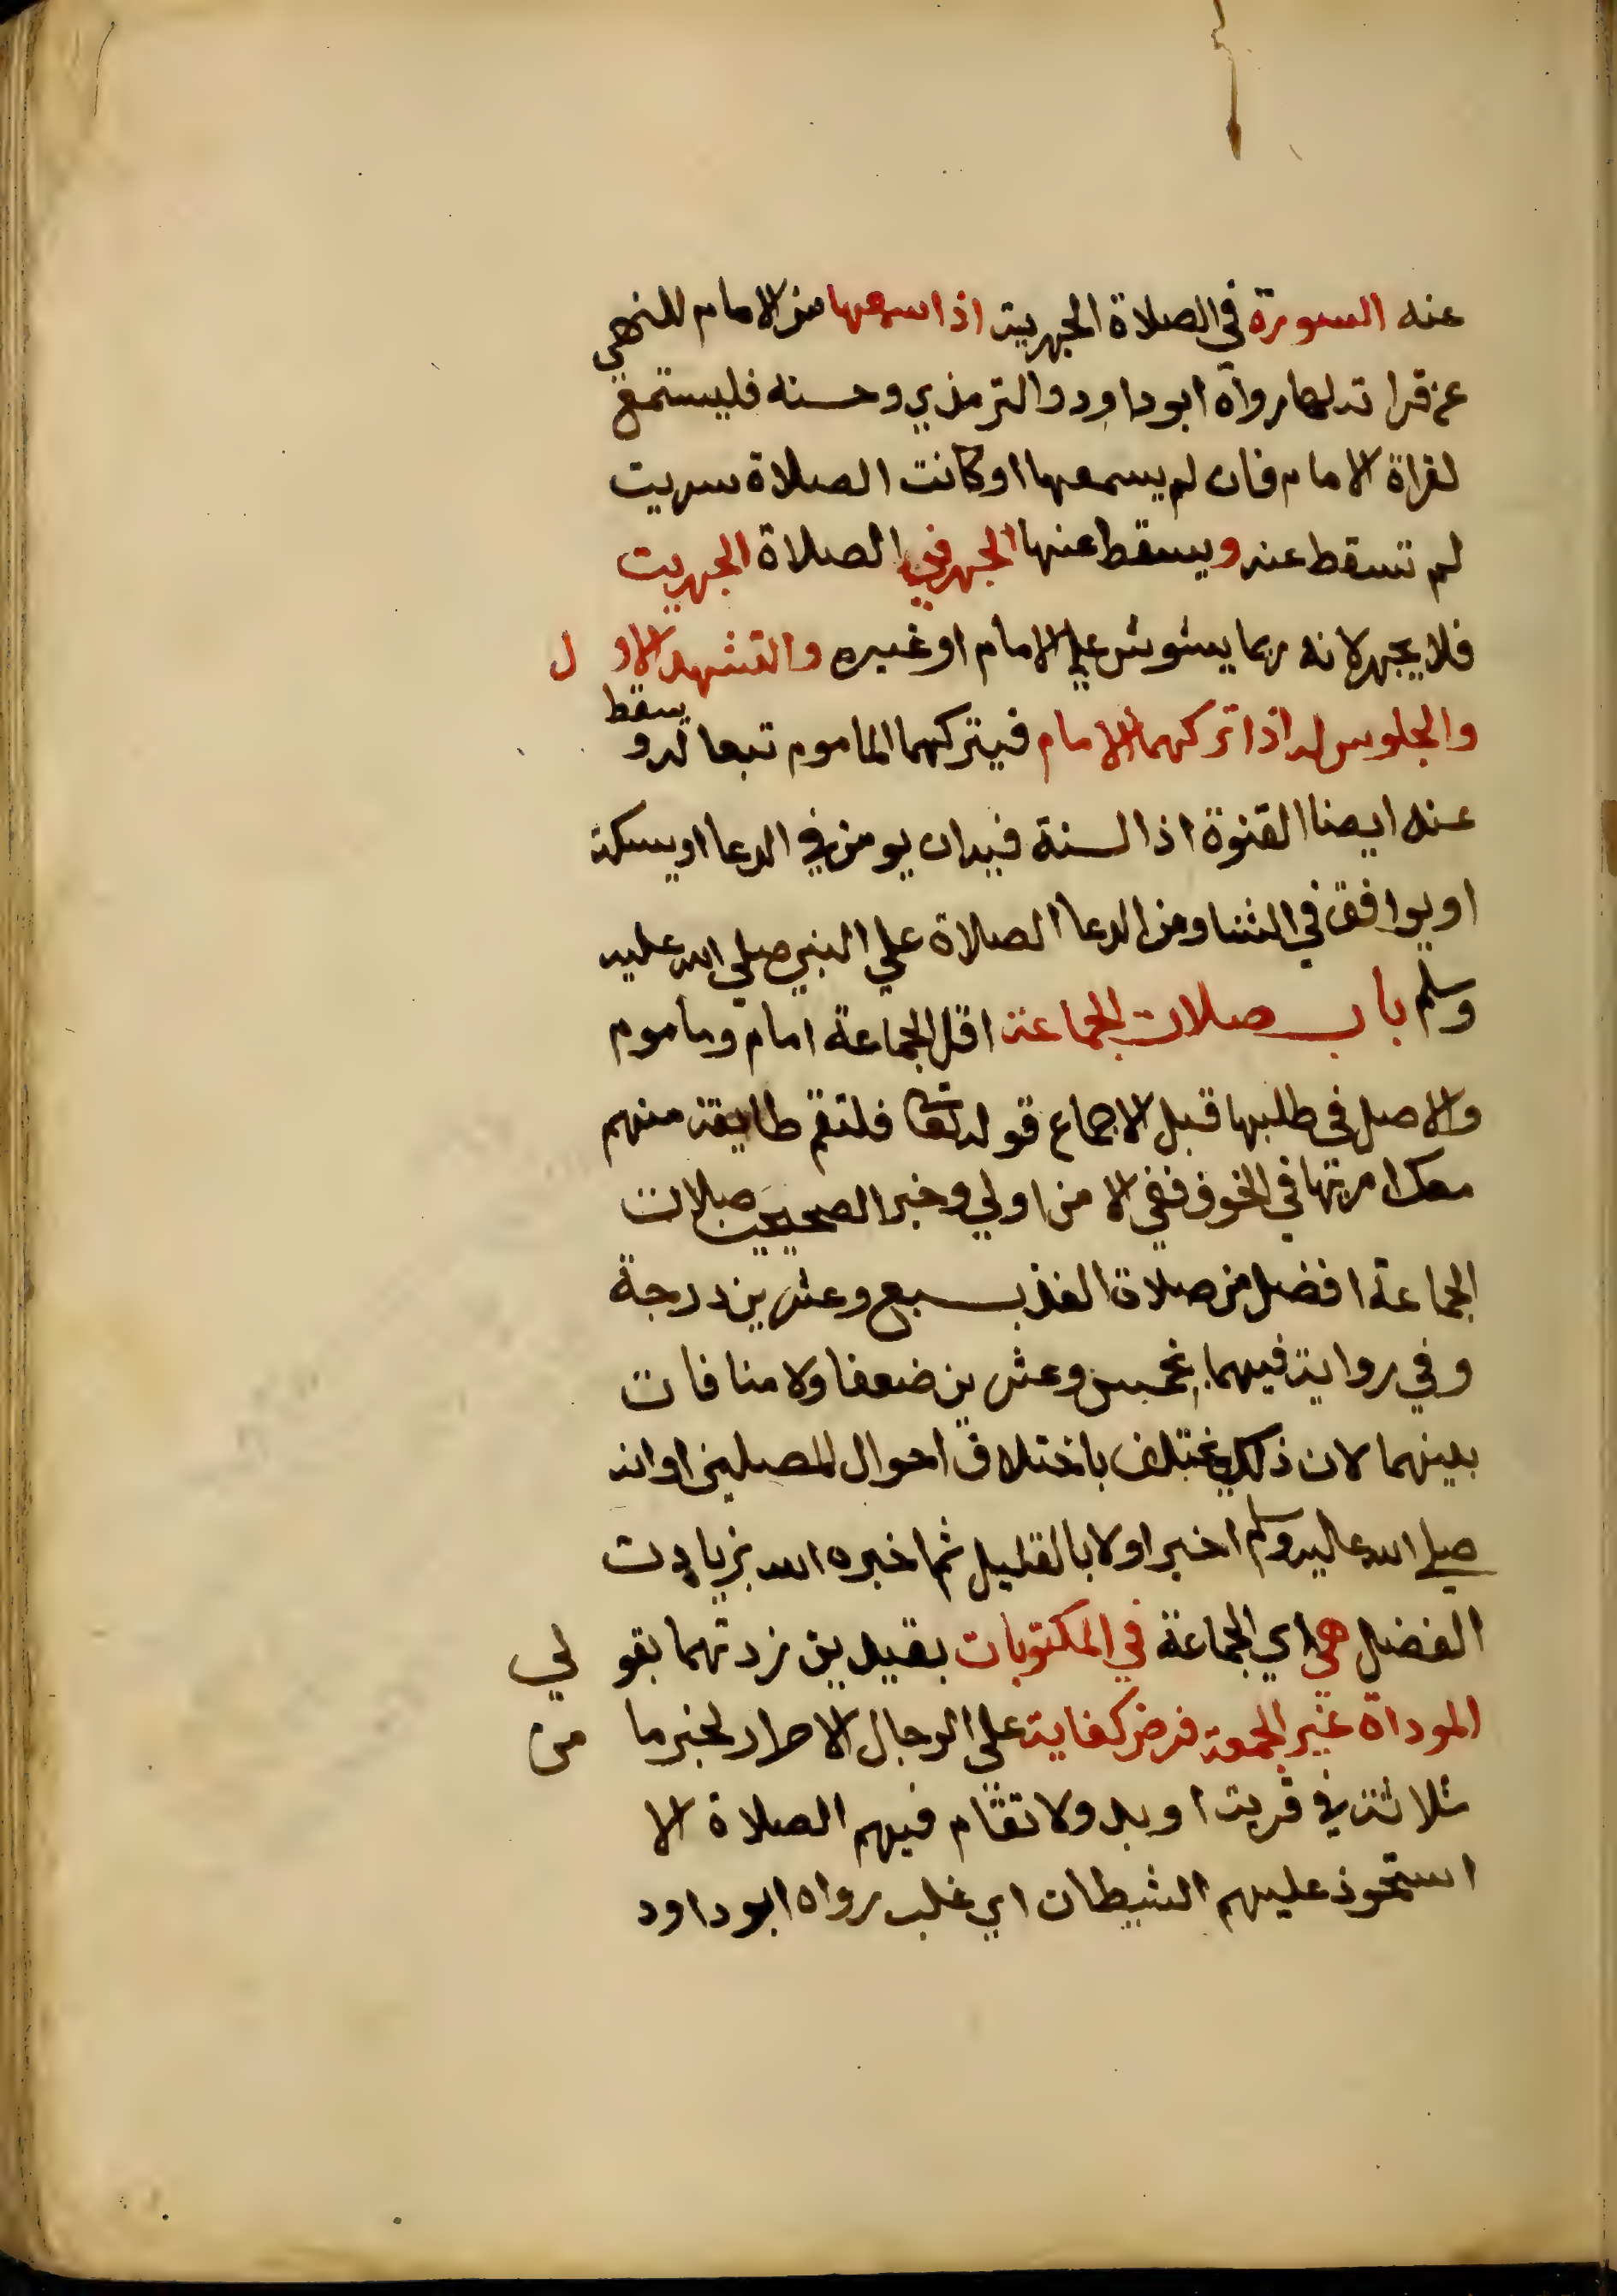 عنه السورة في الصلاة الجهرية اذا سمعها من الامام للنهي
عن قراته لها رواه ابو داود والترمذي وحسنه فليستمع
لقراة الامام فان لم يسمعها او كانت الصلاة سرية
لم تسقط عنه ويسقط عنها الجهر في الصلاة الجهرية
فلا يجهر لانه ربما يشوش علي الامام او غيره والتشهد الاول
والجلوس له اذا تركهما الامام فيتركهما الماموم تبعا له ويسقط
عنه ايضا القنوة اذا السنة فيه ان يومن في الدعا او يسكت
او يوافق في الثنا ومن الدعا الصلاة علي النبي صلي الله عليه
وسلم باب صلات الجماعة اقل الجماعة امام وماموم
والاصل في طلبها قبل الاجماع قوله تعا فلتقم طايفة منهم
معك امر بها في الخوف ففي الامن اولي وخبر الصحيحين صلات
الجماعة افضل من صلاة الفذ بسبع وعشرين درجة
وفي رواية فيهما بخمس وعشرين ضعفا ولا منافات
بينهما لان ذلك يختلف باختلاف احوال المصلين او انه
صلي الله عاليه وسلم اخبر اولا بالقليل ثم اخبره الله بزيادت
الفضل هي اي الجماعة في المكتوبات بقيدين زدتهما بقولي
الموداة غير الجمعة فرض كفاية علي الرجال الاحرار لخبر ما من
ثلاثة في قرية او بدو لا تقام فيهم الصلاة الا
استحوذ عليهم الشيطان اي غلب رواه ابو داود